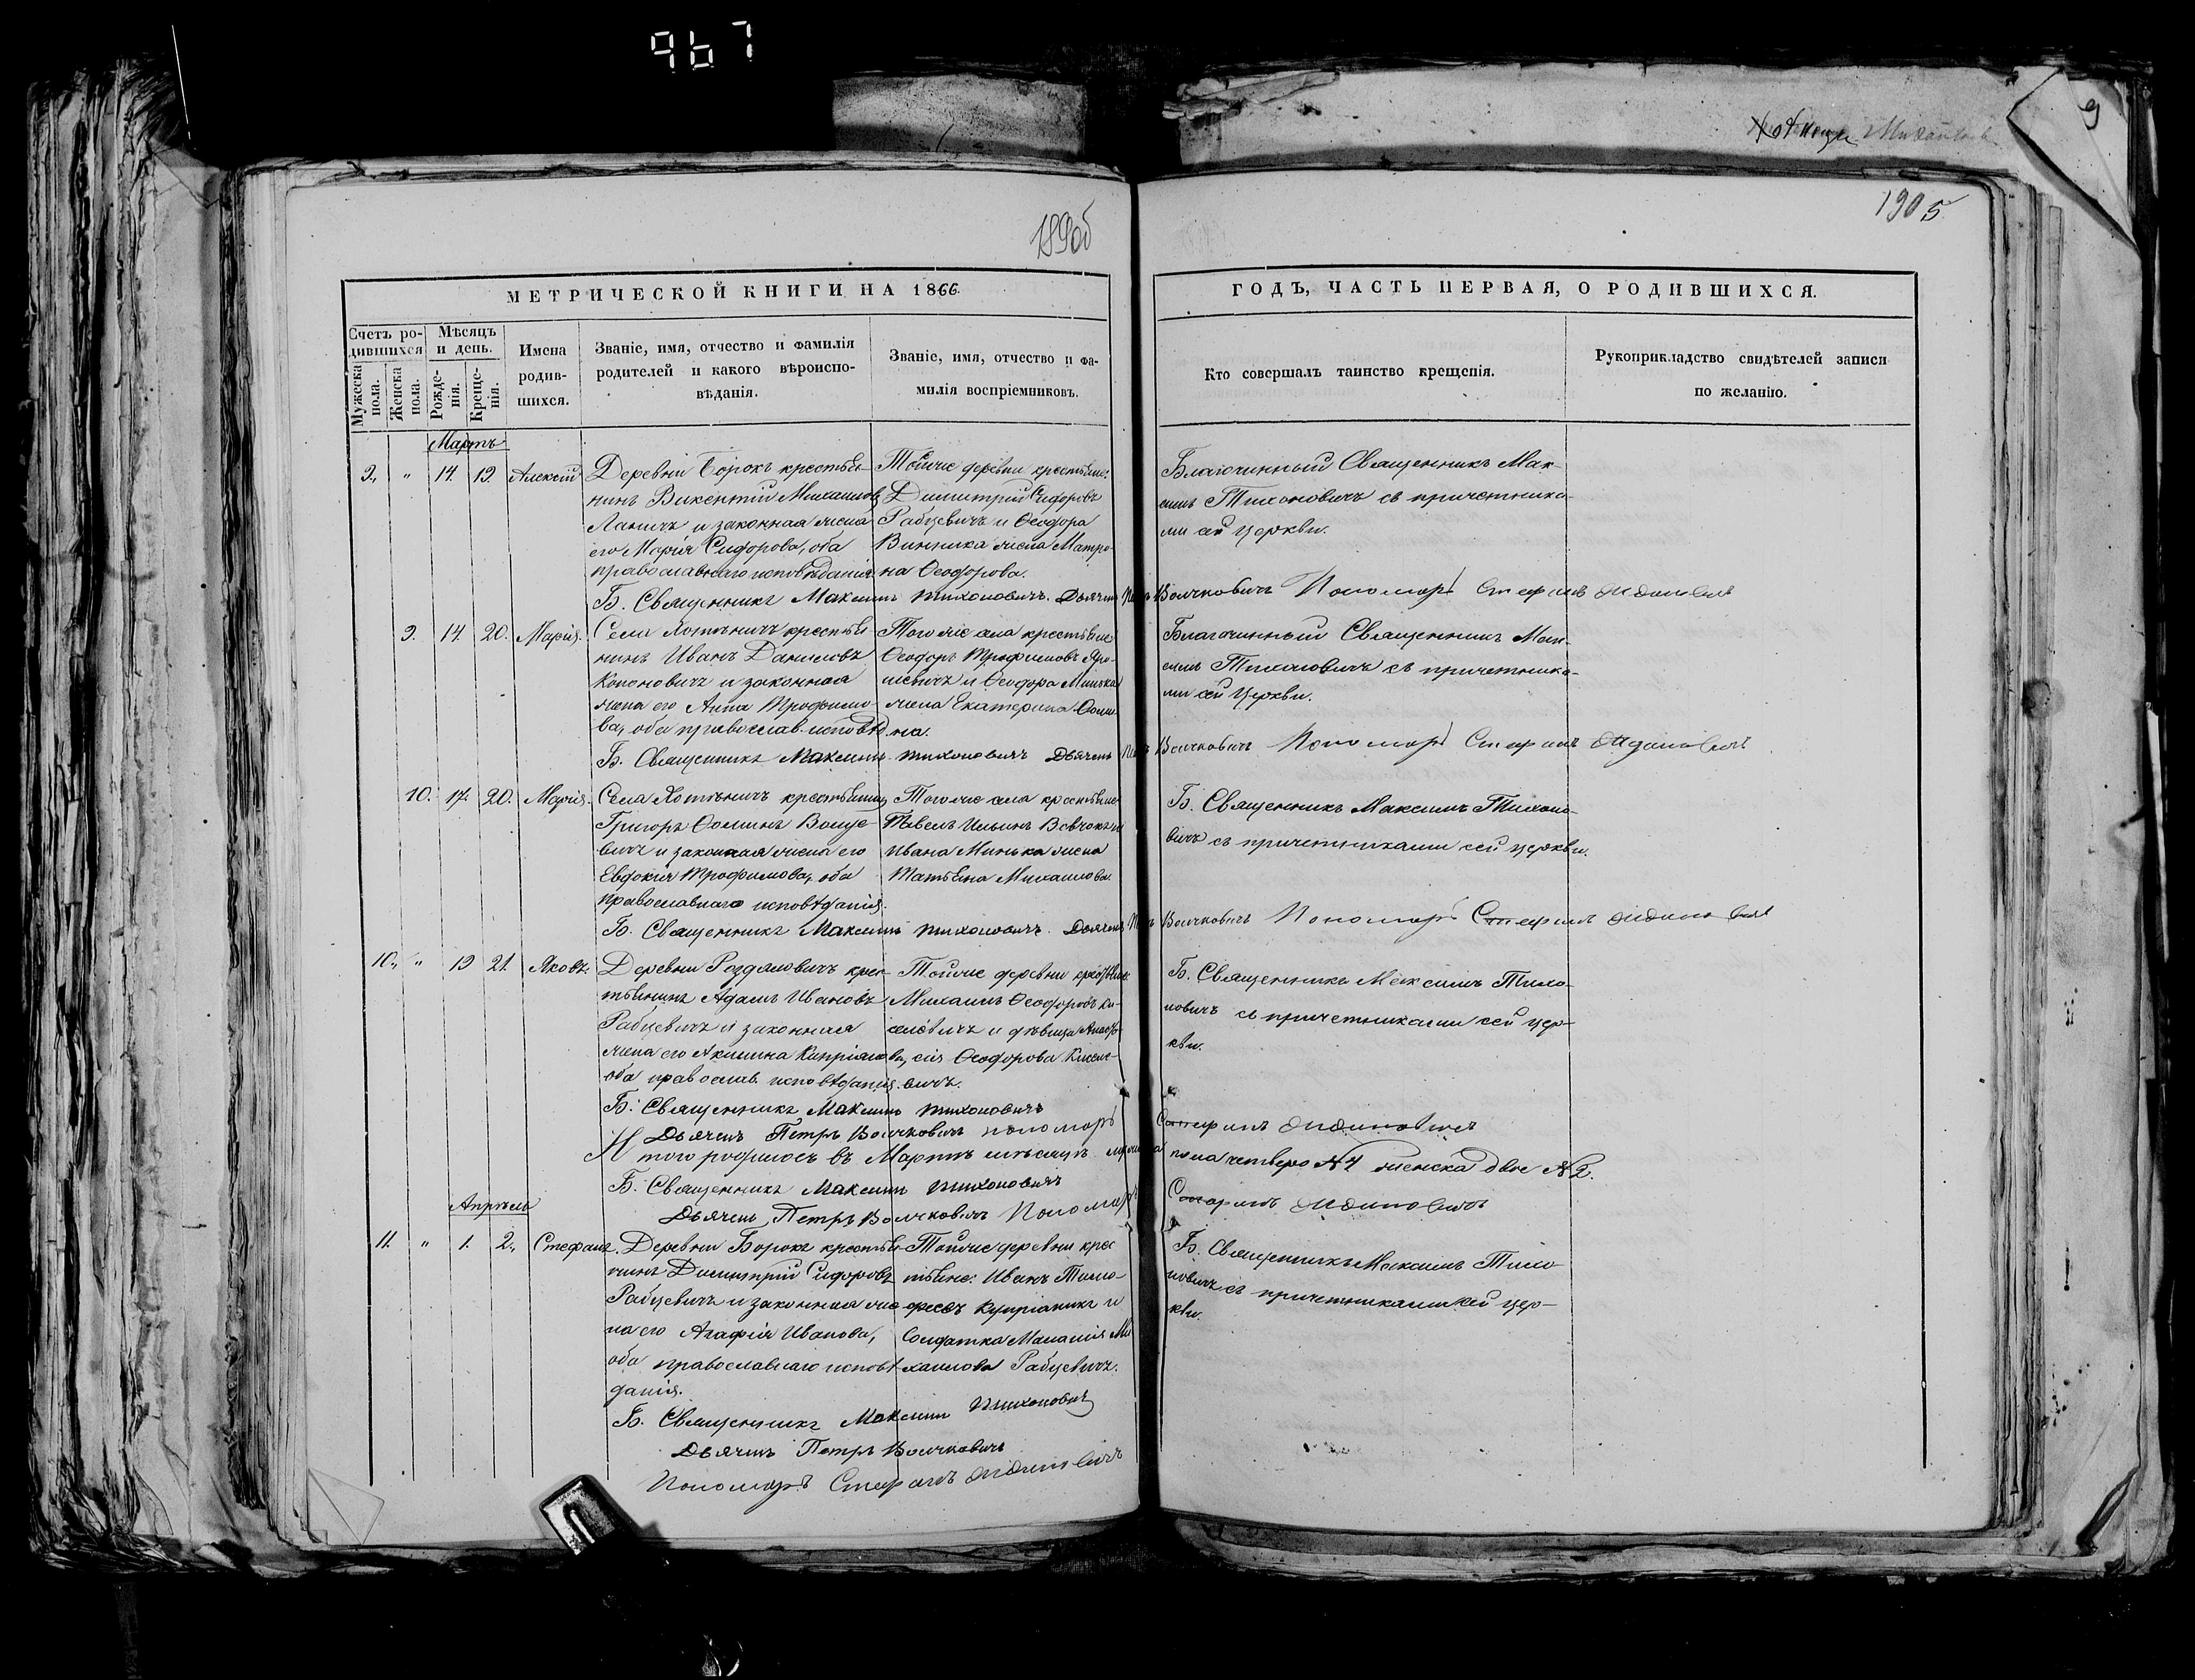 967
189об
190
5
9
МЕТРИЧЕСКОЙ КНИГИ НА 1866.
ГОДЪ, ЧАСТЬ ПЕРВАЯ, О РОДИВШИХСЯ.
Счетъ ро-
дившихся
Мужеска
пола.
Женска
пола.
Мѣсяцъ
и день.
Рожде-
нія.
Креще-
нія.
Имена
родив-
шихся.
Званіе, имя, отчество и фамилія
родителей и какого вѣроиспо-
вѣданія.
Званіе, имя, отчество и фа-
милія воспріемниковъ.
Кто совершалъ таинство крещенія.
Рукоприкладство свидѣтелей записи
по желанію.
Мартъ
9. " 14. 19. Алексій
Деревни Борокъ крестья-
нинъ Викентій Михаиловъ
Ланичъ и законная жена
его Марія Сидорова, оба
православнаго исповѣданія.
Тойже деревни крестьяне:
Димитрій Сидоровъ
Рабцевичъ и Ѳеодора
Винника жена Матро-
на Ѳеодорова.
Благочинный Священникъ Мак-
симъ Тихоновичъ съ причетника-
ми сей Церкви.
Б. Священникъ Максимъ Тихоновичъ. Дьячекъ Петръ Волчковичъ Пономарь Стефанъ
9. 14. 20. Марія.
Села Хотѣничъ крестья-
нинъ Иванъ Даниловъ
Кононовичъ и законная
жена его Анна Трофимо-
ва, оба православ. исповѣд.
Тогоже села крестьяне
Ѳеодоръ Трофимовъ Яро-
шевичъ и Ѳеодора Минька
жена Екатерина Ѳоми-
на.
Благочинный Священникъ Мак-
симъ Тихоновичъ съ причетника-
ми сей Церкви.
Б. Священникъ Максимъ Тихоновичъ Дьячекъ Петръ Волчковичъ Пономарь Стефанъ
10. 17. 20. Марія.
Села Хотѣничъ крестьянинъ
Григорій Ѳоминъ
и законная жена его
Евдокія Трофимова, оба
православнаго исповѣданія.
Тогоже села крестьяне
Павелъ Ильинъ Вовчокъ и
Ивана Минька жена
Татьяна Михаилова.
Б. Священникъ Максимъ Тихоно-
вичъ съ причетниками сей церкви.
Б. Священникъ Максимъ Тихоновичъ. Дьячекъ Петръ Волчковичъ Пономарь Стефанъ
10. " 19 21. Яковъ.
Деревни Роздяловичъ крес-
тьянинъ Адамъ Ивановъ
Рабцевичъ и законная
жена его Акилина Кипріанова,
оба православ. исповѣданія.
Тойже деревни крестьяне:
Михаилъ Ѳеодоровъ Ки-
селевичъ и дѣвица Анаста-
сія Ѳеодорова Кисел-
евичъ.
Б. Священникъ Максимъ Тихо-
новичъ съ причетниками сей цер-
кви.
Б. Священникъ Максимъ Тихоновичъ
Дьячекъ Петръ Волчковичъ пономарь Стефанъ
Итого родилось въ Мартѣ мѣсяцѣ мужеска пола четверо №4 женска двое №2.
Б. Священникъ Максимъ Тихоновичъ
Дьячекъ Петръ Волчковичъ Пономарь Стефанъ
Апрѣль
11. " 1. 2. Стефанъ.
Деревни Борокъ крестья-
нинъ Димитрій Сидоровъ
Рабцевичъ и законная же-
на его Агафія Иванова,
оба православнаго исповѣ-
данія.
Тойже деревни крес
тьяне: Иванъ Тимо-
феевъ Купріаникъ и
Солдатка Маланія Ми
хаилова Рабцевичъ.
Б. Священникъ Максимъ Тихо
новичъ съ причетниками сей цер-
кви.
Б. Священникъ Максимъ Тихоновичъ
Дьячекъ Петръ Волчковичъ
Пономарь Стефанъ